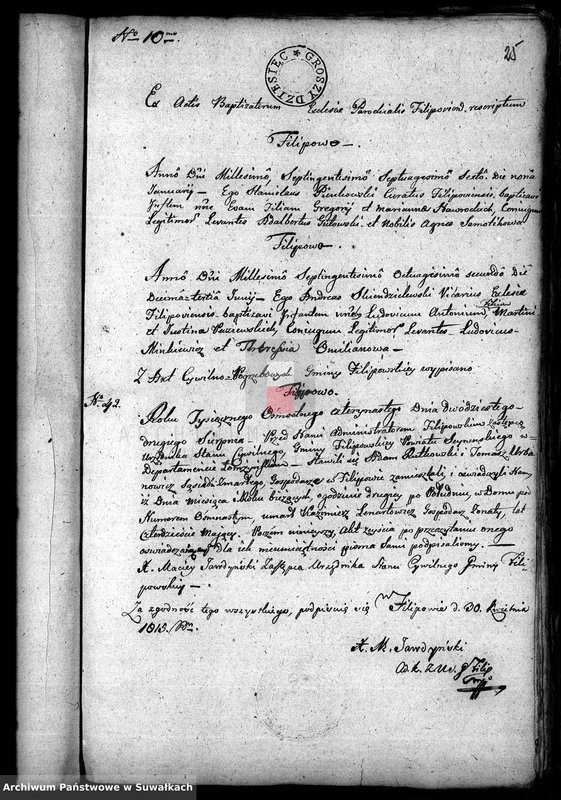 No 10mo.
25
GROSZY DZIESIĘC
Ex Actis Baptizatorum Ecclesiæ Parochialis Filipovien. rescriptum
Filipowo.
Annō Dnī Millesimō Septingentesimō Septuagesimō Sextō Die nona
Januarij Ego Stanislaus Curatus Filipoviensis, baptizavi
Infantem nne Evam Filiam Gregorij et Marianna Nawrockich, Coniugum
Legitimor Levantes Adalbertus Gutowski, et Nobilis Agnes
Filipowo.
Annō Dnī Millesimō Septingentesimō Octuagesimō secundō Die
Decima tertia Junij Ego Andreas Vicarius Ecclesiæ
Filipoviensis baptizavi Infantem Ludovicum Antonium, Filium Martini
et Justina Coniugum Legitimor Levantes Ludovicus
Minkiewicz et Omilianowa
Z Akt Cywilno Pogrzebowych Gminy Filipowskiey wypisano
Filipowo.
No 42.
Roku Tysiącznego Osmsetnego czternastego Dnia dwódziestego
drugiego Sierpnia. Przed Nami Administratorem Filipowskim Zastępcą
Urzędnika Stanu Cywilnego, Gminy Filipowskiey Powiatu Seyneńskiego w
Departamencie Łomżyńskim Stawili się Adam Rutkowski i Tomasz Urba
nowicz Sąsiedzi Zmarłego, Gospodarze w Filipowie zamieszkali, i oświadczyli Nam,
iż Dnia miesiąca i Roku bieżących, ogodzinie drugiey po Południu, w Domu pod
Numerem umarł Kazimierz Lenartowicz Gospodarz Żonaty, lat
czterdzieści mający. Poczem ninieyszy Akt zeyścia po przeczytaniu onego
oswiadczaiącym dla ich nieumieiętności pisma Sami podpisaliśmy.
X. Maciey Jawdyński Zastępca Urzędnika Stanu Cywilnego Gminy Fili
powskiey
Za zgodność tego wszystkiego, podpisuię się w Filipowie d. 30. Kwietnia
1815. Rtu.
X. M. Jawdyński
Archiwum Państwowe w Suwałkach